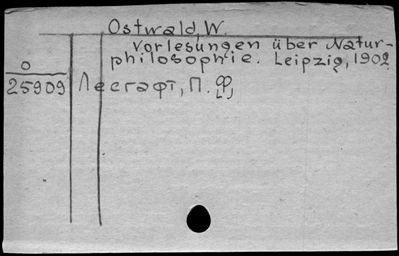 Ostwald, W.
Vorlesungen über Natur-
philosophie. Leipzig, 1902
0
25909
Лесгафт, П. Ф.